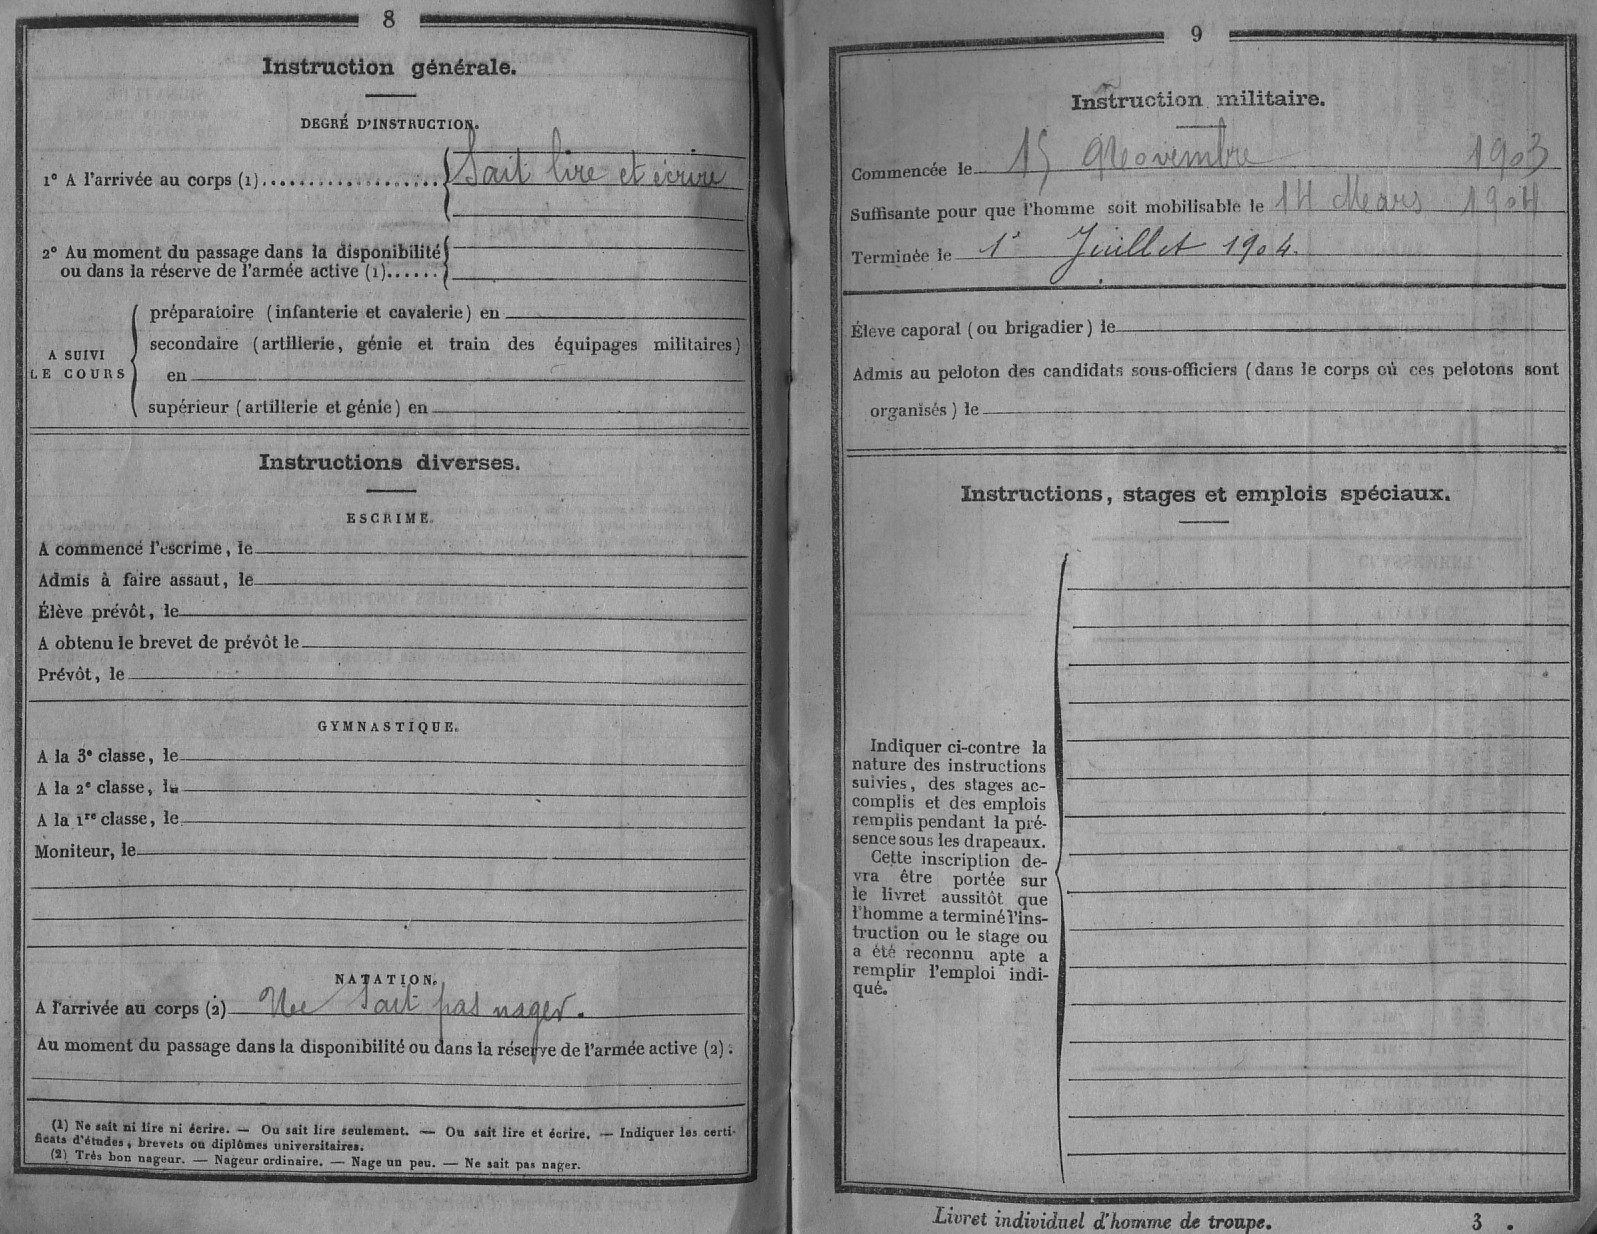 8
Instruction générale.
DEGRÉ D'INSTRUCTION.
1° A l'arrivée au corps (1).................. Sait lire et écrire
2° Au moment du passage dans la disponibilité
ou dans la réserve de l'armée active (1)......
A SUIVI
LE COURS
préparatoire (infanterie et cavalerie) en
secondaire (artillerie, génie et train des équipages militaires)
en
supérieur (artillerie et génie) en
Instructions diverses.
ESCRIME.
A commencé l'escrime, le
Admis à faire assaut, le
Élève prévôt, le
A obtenu le brevet de prévôt le
Prévôt, le
GYMNASTIQUE.
A la 3e classe, le
A la 2e classe, le
A la 1re classe, le
Moniteur, le
NATATION.
A l'arrivée au corps (2) Ne Sait pas nager.
Au moment du passage dans la disponibilité ou dans la réserve de l'armée active (2) :
(1) Ne sait ni lire ni écrire. — Ou sait lire seulement. — Ou sait lire et écrire. — Indiquer les certi-
ficats d'études, brevets ou diplômes universitaires.
(2) Très bon nageur. — Nageur ordinaire. — Nage un peu. — Ne sait pas nager.
9
Instruction militaire.
Commencée le 15 Novembre 1903
Suffisante pour que l'homme soit mobilisable le 14 Mars 1904
Terminée le 1r Juillet 1904.
Élève caporal (ou brigadier) le
Admis au peloton des candidats sous-officiers (dans le corps où ces pelotons sont
organisés) le
Instructions, stages et emplois spéciaux.
Indiquer ci-contre la
nature des instructions
suivies, des stages ac-
complis et des emplois
remplis pendant la pré-
sence sous les drapeaux.
Cette inscription de-
vra être portée sur
le livret aussitôt que
l'homme a terminé l'ins-
truction ou le stage ou
a été reconnu apte a
remplir l'emploi indi-
qué.
Livret individuel d'homme de troupe. 3 .